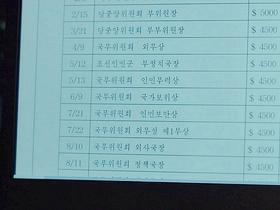 2/15 당중앙위원회 부위원장 $ 5000
3/21 당중앙위원회 부부위원장 $ 4500
4/9 국무위원회 외무상 $ 4500
5/12 조선인민군 부정치국장 $ 4500
5/13 국무위원회 인민무력상 $ 4500
6/9 국무위원회 국가보위상 $ 4500
7/21 국무위원회 인민보안상 $ 4500
7/22 국무위원회 외무성 제1부상 $ 4500
8/10 국무위원회 외사국장 $ 4500
8/11 국무위원회 정책국장 $ 4500